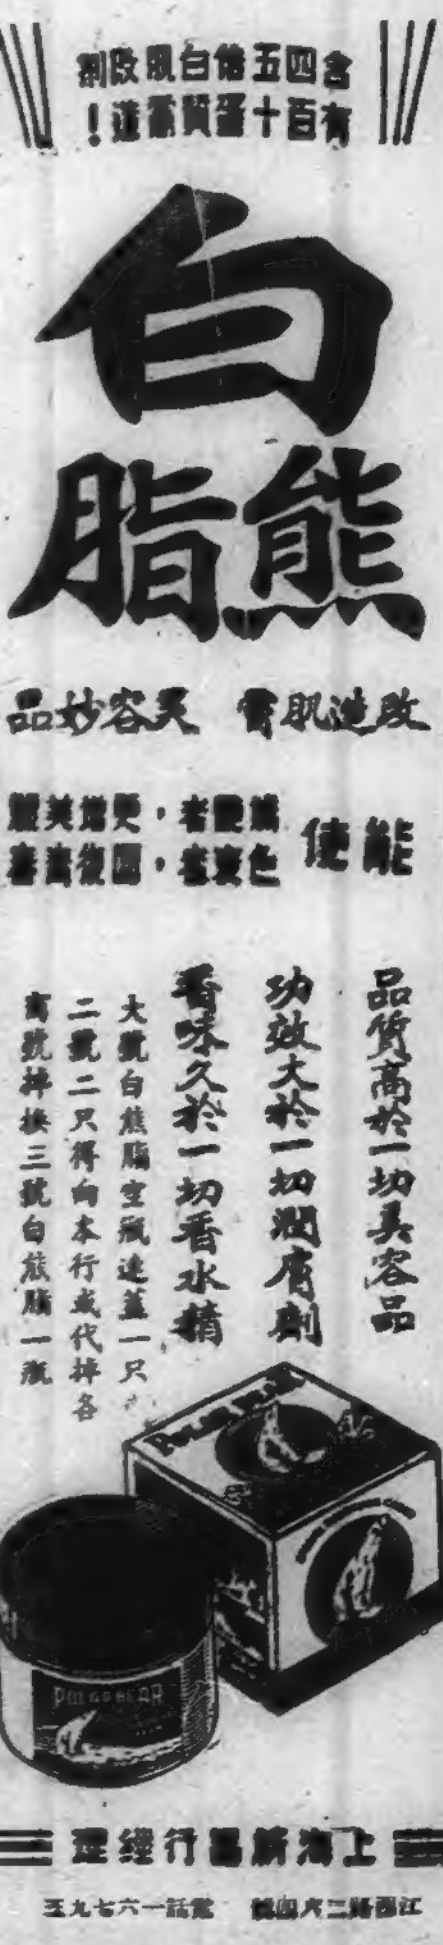 含四五倍白肌改劑
有百十蛋質膚造！
白
熊脂
改造肌膚 美容妙品
能使
嬌艷者，更增美麗
色衰者，回復青春
品質高於一切美容品
功效大於一切潤膚劑
香味久於一切香水精
大號白熊脂空瓶連蓋一只
二號二只得向本行或代掉各
商號掉換三號白熊脂一瓶
POLAR BEAR
上海行經理
江西路二六四號 電話一六七九五